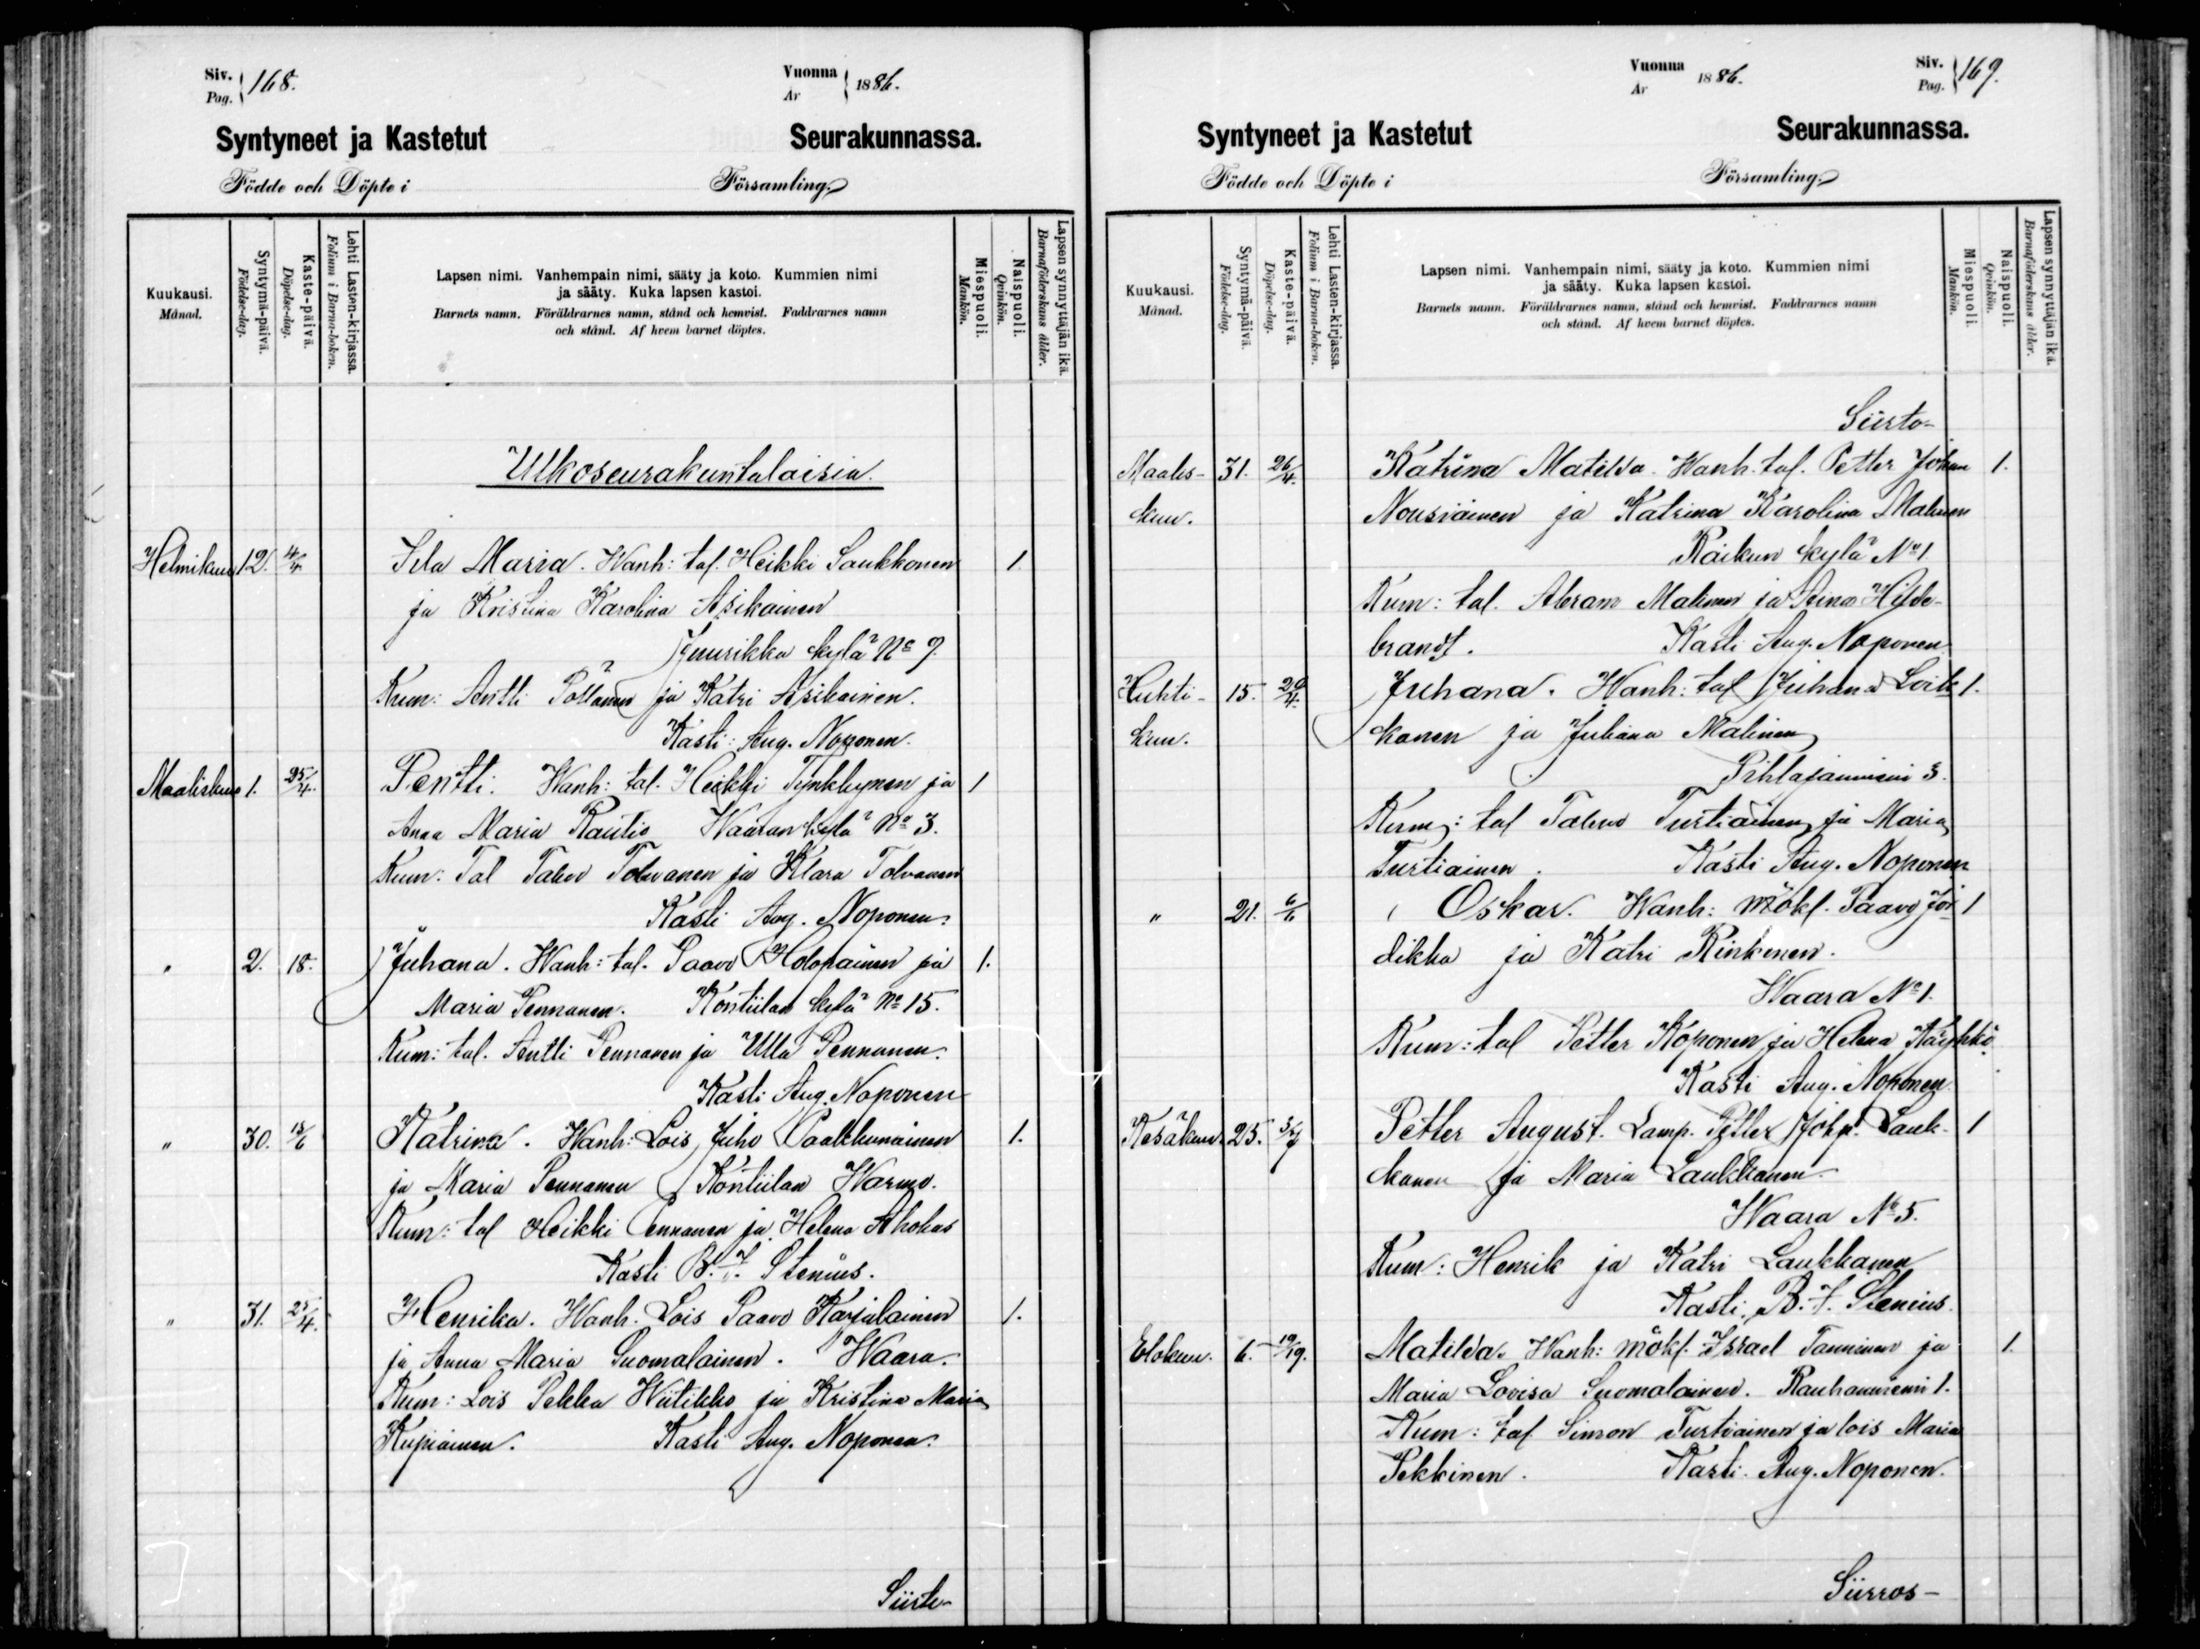 Siv. 168.
Pag.
Vuonna 1886.
År
Syntyneet ja Kastetut Seurakunnassa.
Födde och Döpte i Församling.
Kuukausi.
Månad.
Syntymä-päivä.
Födelse-dag.
Kaste-päivä.
Döpelse-dag.
Lehti Lasten-kirjassa.
Folium i Barna-boken.
Lapsen nimi. Vanhempain nimi, sääty ja koto. Kummien nimi
ja sääty. Kuka lapsen kastoi.
Barnets namn. Föräldrarnes namn, stånd och hemvist. Faddrarnes namn
och stånd. Af hvem barnet döptes.
Miespuoli.
Mankön.
Naispuoli.
Qvinkön.
Lapsen synnyttäjän ikä.
Barnaföderskans ålder.
Ulkoseurakuntalaisia.
Helmikuu 12. 4/4 Maria. Wanh: tal. Heikki Laukkonen 1.
ja Kristina Karolina Asikainen
Juurikka kylä No 9.
Kum: Antti ja Katri Asikainen.
Kasti: Aug. Noponen.
Maaliskuu 1. 25/4. Pentti. Wanh: tal. Heikki Tynkkynen ja 1
Anna Maria Rautio Waaran kylä No 3.
Kum: Tal Tahvo Tolvanen ja Klara Tolvanen
Kasti Aug. Noponen.
" 2. 18. Juhana. Wanh: tal. Paavo Holopainen ja 1.
Maria Pennanen. Kontiilan kylä No 15.
Kum: tal. Antti Pennanen ja Ulla Pennanen.
Kasti Aug. Noponen
" 30. 13/6 Katrina. Wanh: Lois Juho Paakkunainen 1.
ja Maria Pennanen Kontiilan
Kum: tal Heikki Pennanen ja Helena Ahokas
Kasti B. J. Stenius.
" 31. 25/4. Henrika. Wanh. Lois Paavo Karjalainen 1.
ja Anna Maria Suomalainen. Waara.
Kum: Lois Pekka Wiitikko ja Kristina Maria
Kupiainen. Kasti Aug. Noponen.
Siirto
Vuonna 1886.
År
Siv. 169.
Pag.
Syntyneet ja Kastetut Seurakunnassa.
Födde och Döpte i Församling.
Kuukausi.
Månad.
Syntymä-päivä.
Födelse-dag.
Kaste-päivä.
Döpelse-dag.
Lehti Lasten-kirjassa.
Folium i Barna-boken.
Lapsen nimi. Vanhempain nimi, sääty ja koto. Kummien nimi
ja sääty. Kuka lapsen kastoi.
Barnets namn. Föräldrarnes namn, stånd och hemvist. Faddrarnes namn
och stånd. Af hvem barnet döptes.
Miespuoli.
Mankön.
Naispuoli.
Qvinkön.
Lapsen synnyttäjän ikä.
Barnaföderskans ålder.
Siirto-
Maalis- 31. 26/4. Katrina Matilda. Wanh. tal. Petter Johan 1.
kuu. Nousiainen ja Katrina Karolina Malinen
Raikun kylä No 1
Kum: tal. Abram Malinen ja Aina Hilde-
brandt. Kasti Aug. Noponen
Huhti- 15. 26/4. Juhana. Wanh: tal Juhana Loik 1.
kuu. kanen ja Juliana Malinen
Pihlajaniemi 3.
Kum: tal Tahvo Turtiainen ja Maria
Turtiainen. Kasti Aug. Noponen
" 21. 6/6 Oskar. Wanh: mökl. Paavo Jör 1
dikka ja Katri Rinkinen.
Waara No 1.
Kum: tal Petter Koponen ja Helena Käyhkö
Kasti Aug. Noponen.
Kesäkuu 25. 5/7 Petter August. Lamp. Petter Joh. Lauk- 1
kanen ja Maria Laukkanen
Waara No 5.
Kum: Henrik ja Katri Laukkanen
Kasti. B. J. Stenius.
Elokuu. 6. 19/9. Matilda. Wanh: mökl. Israel Tanninen ja 1.
Maria Lovisa Suomalainen. Rauhaniemi 1.
Kum: tal Simon Turtiainen ja lois Maria
Pekkinen. Kasti. Aug. Noponen.
Siirros-